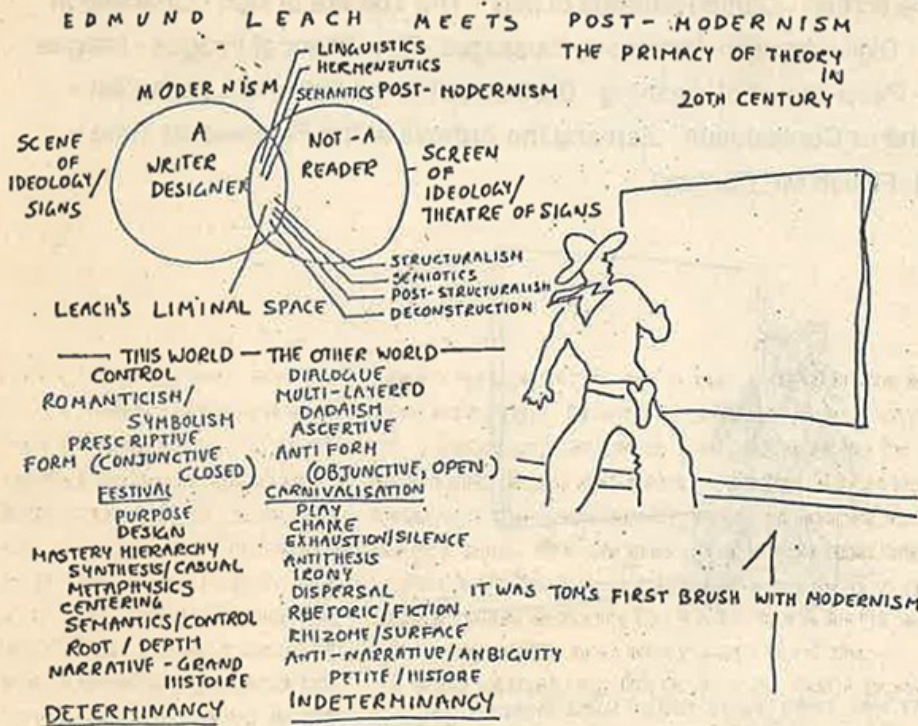 EDMUND LEACH MEETS POST-MODERNISM
THE PRIMACY OF THEORY
IN
20TH CENTURY
LINGUISTICS
HERMENEUTICS
SEMANTICS
MODERNISM
POST-MODERNISM
SCENE
OF
IDEOLOGY/
SIGNS
A
WRITER
DESIGNER
NOT-A
READER
SCREEN
OF
IDEOLOGY/
THEATRE OF SIGNS
STRUCTURALISM
SEMIOTICS
POST-STRUCTURALISM
DECONSTRUCTION
LEACH'S LIMINAL SPACE
THIS WORLD — THE OTHER WORLD
CONTROL
ROMANTICISM/
SYMBOLISM
PRESCRIPTIVE
FORM (CONJUNCTIVE
CLOSED)
FESTIVAL
PURPOSE
DESIGN
MASTERY HIERARCHY
SYNTHESIS/CASUAL
METAPHYSICS
CENTERING
SEMANTICS/CONTROL
ROOT / DEPTH
NARRATIVE - GRAND
HISTOIRE
DETERMINANCY
DIALOGUE
MULTI-LAYERED
DADAISM
ASCERTIVE
ANTI FORM
(OBJUNCTIVE, OPEN)
CARNIVALISATION
PLAY
CHANCE
EXHAUSTION/SILENCE
ANTITHESIS
IRONY
DISPERSAL
RHETORIC/FICTION
RHIZOME/SURFACE
ANTI-NARRATIVE/AMBIGUITY
PETITE/HISTORE
INDETERMINANCY
IT WAS TOM'S FIRST BRUSH WITH MODERNISM